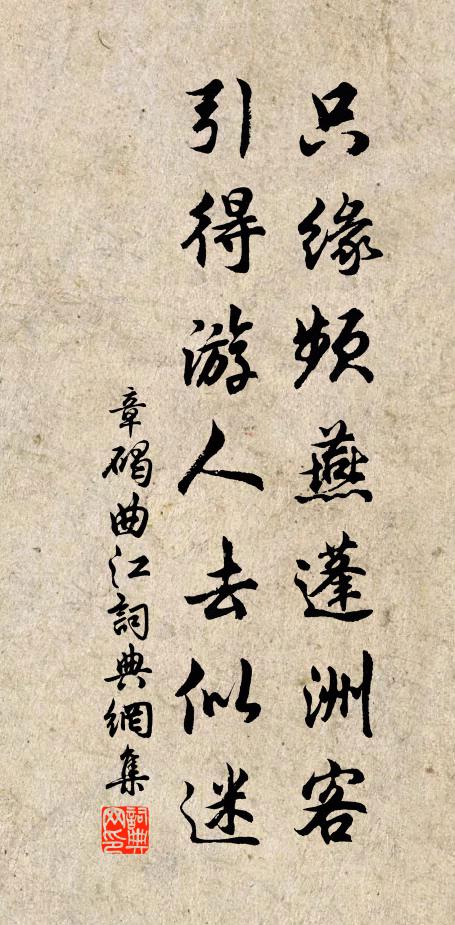 只缘频燕蓬洲客
引得游人去似迷
章碣曲江詞典網集
詞典网印